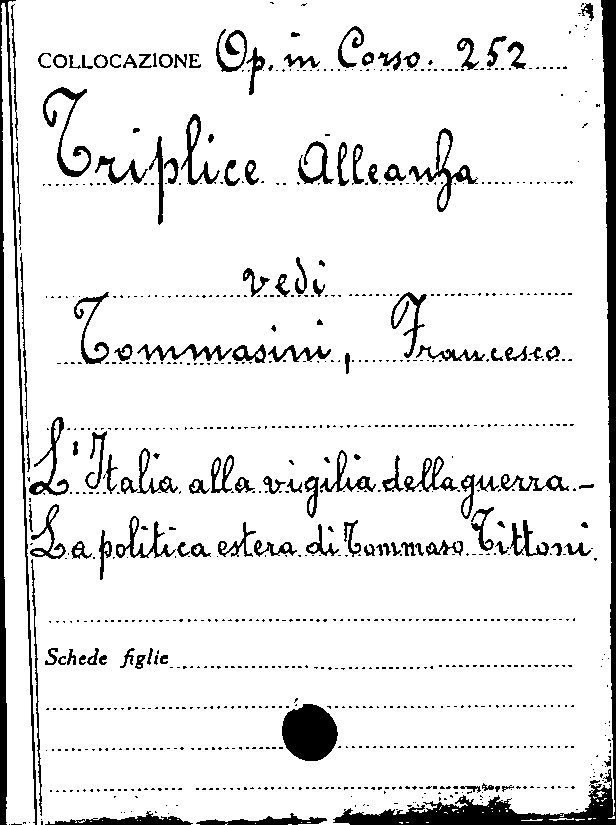 COLLOCAZIONE Op. in Corso. 252
Triplice Alleanza
vedi
Tommasini, Francesco
L'Italia alla vigilia della guerra -
La politica estera di Tommaso Tittoni.
Schede figlie